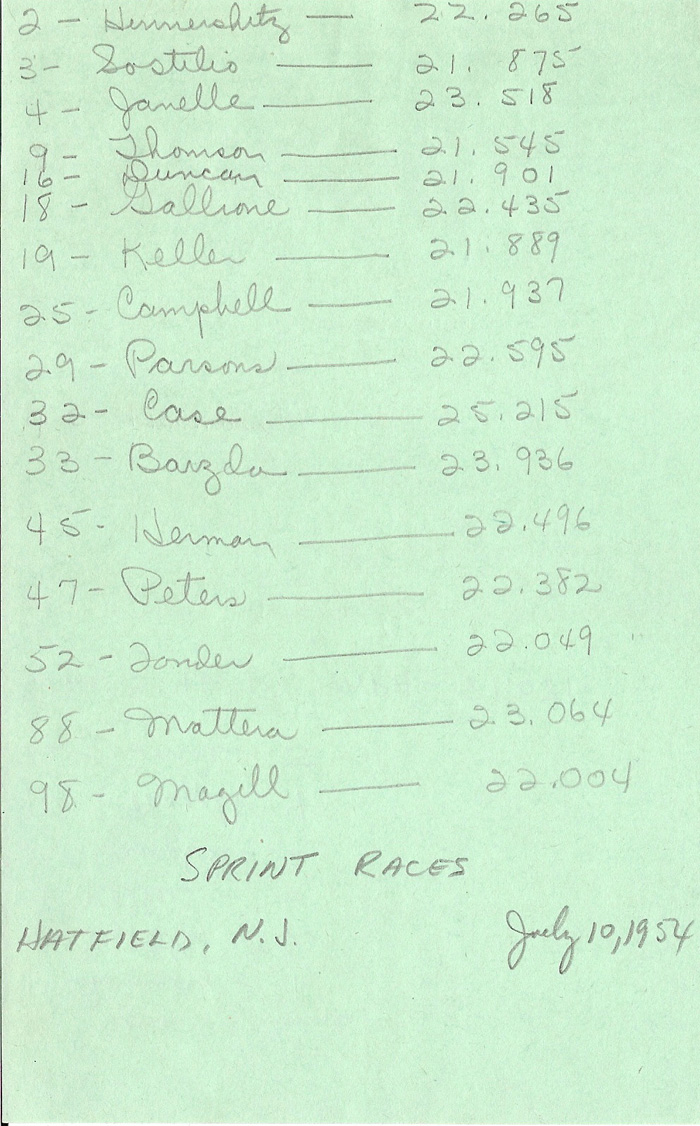 2 - Hinnershitz — 22.265
3 - Sostilio — 21.875
4 - Janelle — 23.518
9 - Thomson — 21.545
16 - Duncan — 21.901
18 - Gallione — 22.435
19 - Keller — 21.889
25 - Campbell — 21.937
29 - Parsons — 22.595
32 - Case — 25.215
33 - Barzda — 23.936
45 - Herman — 22.496
47 - Peters — 22.382
52 - Tonder — 22.049
88 - Mattera — 23.064
98 - Magill — 22.004
SPRINT RACES
HATFIELD, N.J. July 10, 1954